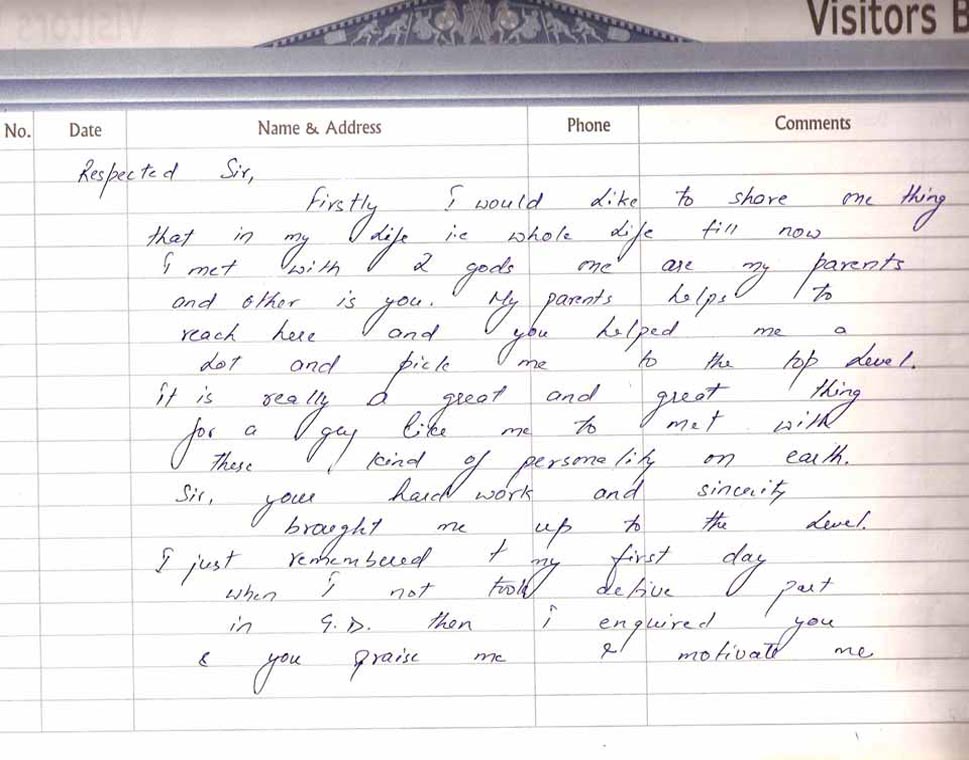 Visitors B
No. Date Name & Address Phone Comments
Respected Sir,
Firstly I would like to share one thing
that in my life i.e whole life till now
I met with 2 gods one are my parents
and other is you. My parents helps to
reach here and you helped me a
lot and pick me to the top level.
it is really a great and great thing
for a guy like me to met with
these kind of personality on earth.
Sir, your hard work and sincerity
brought me up to the level.
I just remembered my first day
when I not took active part
in G.D. then i enquired you
& you praise me & motivate me